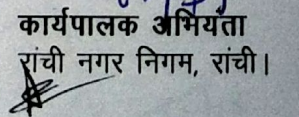 कार्यपालक अभियंता
रांची नगर निगम, रांची।